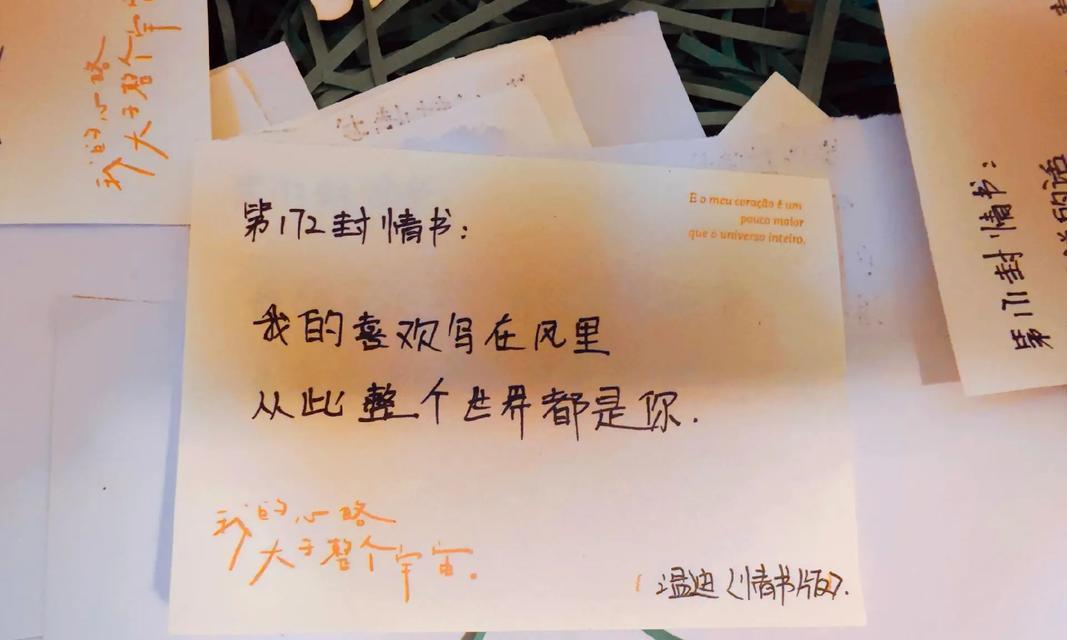 我的心略
大于整个宇
第172封情书：
E o meu coração é um
pouco maior
que o universo inteiro.
我的喜欢写在风里
从此整个世界都是你.
我的心略
大于整个宇宙.
温迪《情书版》.
第171封情书：
的话